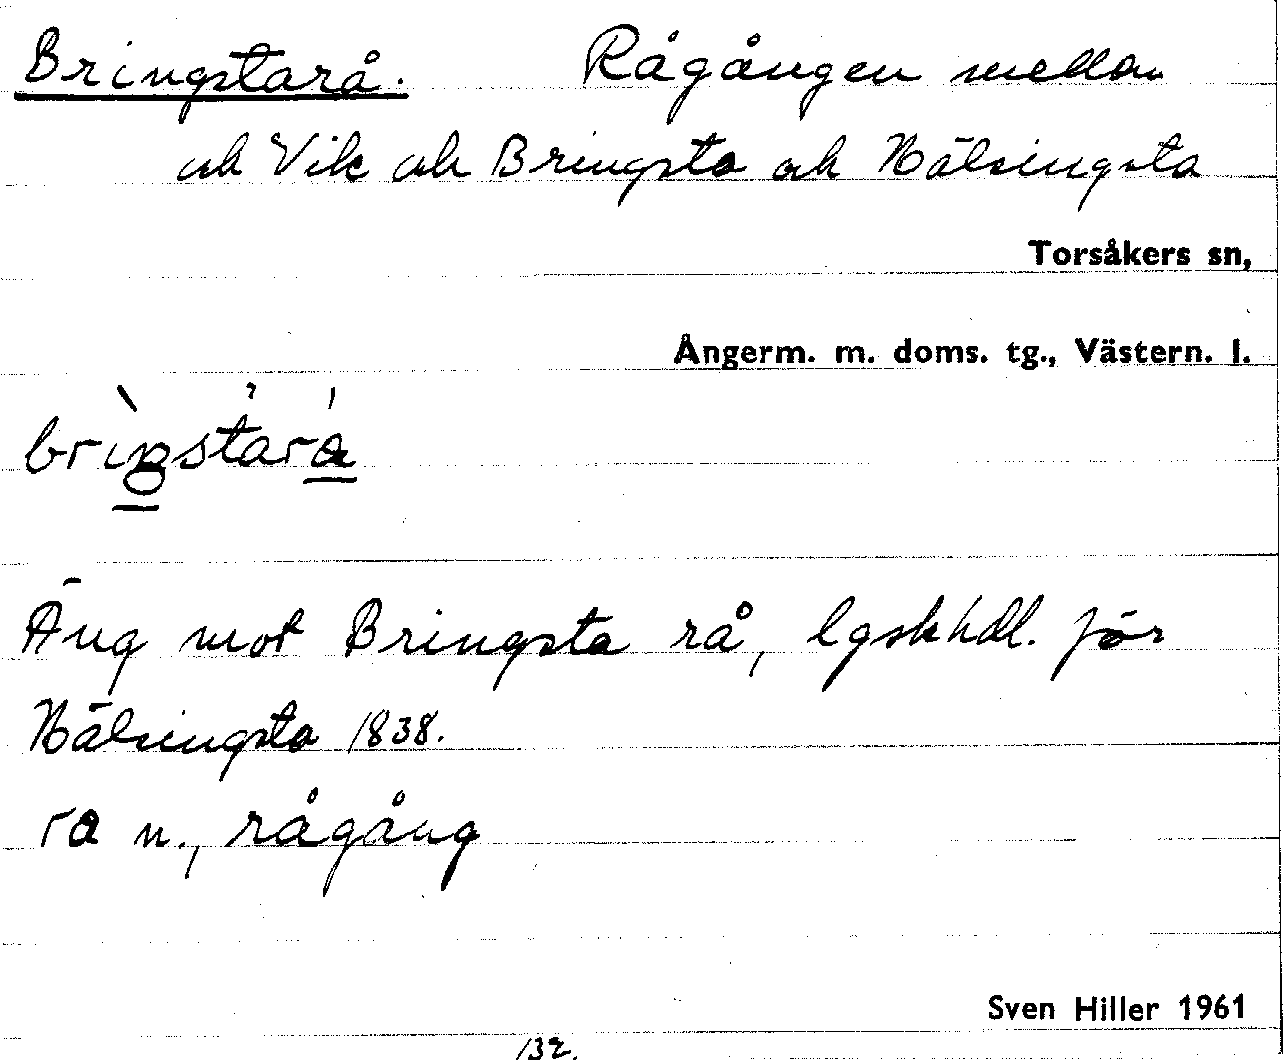 Bringstarå. Rågången mellan
och Vik och Bringsta och Hälsingsta
Torsåkers sn,
Ångerm. m. doms. tg., Västern. l.
Äng mot Bringsta rå, lgskhdl. för
Hälsingsta 1838.
ra n., rågång
Sven Hiller 1961
132.